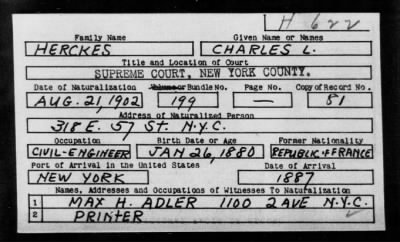 H 622
Family Name Given Name or Names
HERCKES CHARLES L.
Title and Location of Court
SUPREME COURT, NEW YORK COUNTY.
Date of Naturalization Volume or Bundle No. Page No. Copy of Record No.
AUG. 21, 1902 199 — 81
Address of Naturalized Person
318 E. 57 ST. N.Y.C.
Occupation Birth Date or Age Former Nationality
CIVIL-ENGINEER JAN 26, 1880 REPUBLIC OF FRANCE
Port of Arrival in the United States Date of Arrival
NEW YORK 1887
Names, Addresses and Occupations of Witnesses To Naturalization
1 MAX H. ADLER 1100 2 AVE N.Y.C.
2 PRINTER